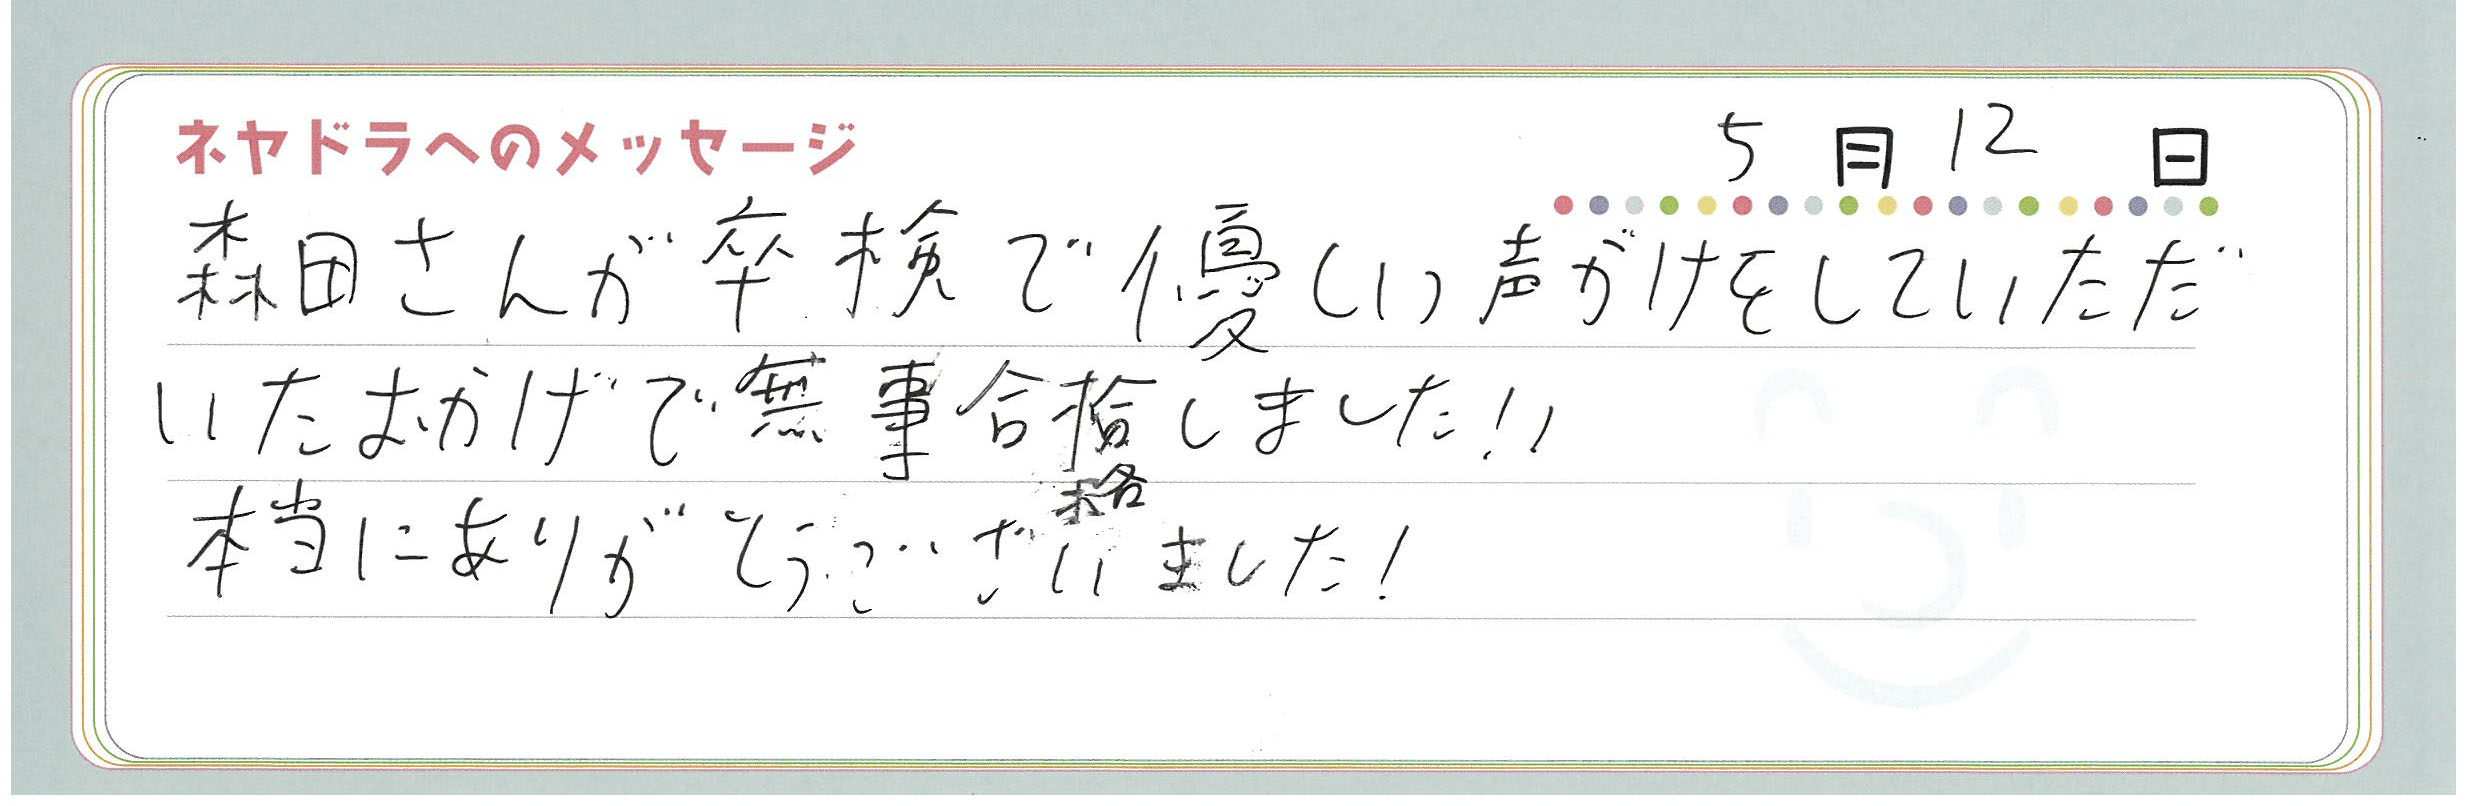 ネヤドラへのメッセージ
5月12日
森田さんが卒検で優しい声がけをしていただ
いたおかげで無事合格しました!!
格
本当にありがとうございました!